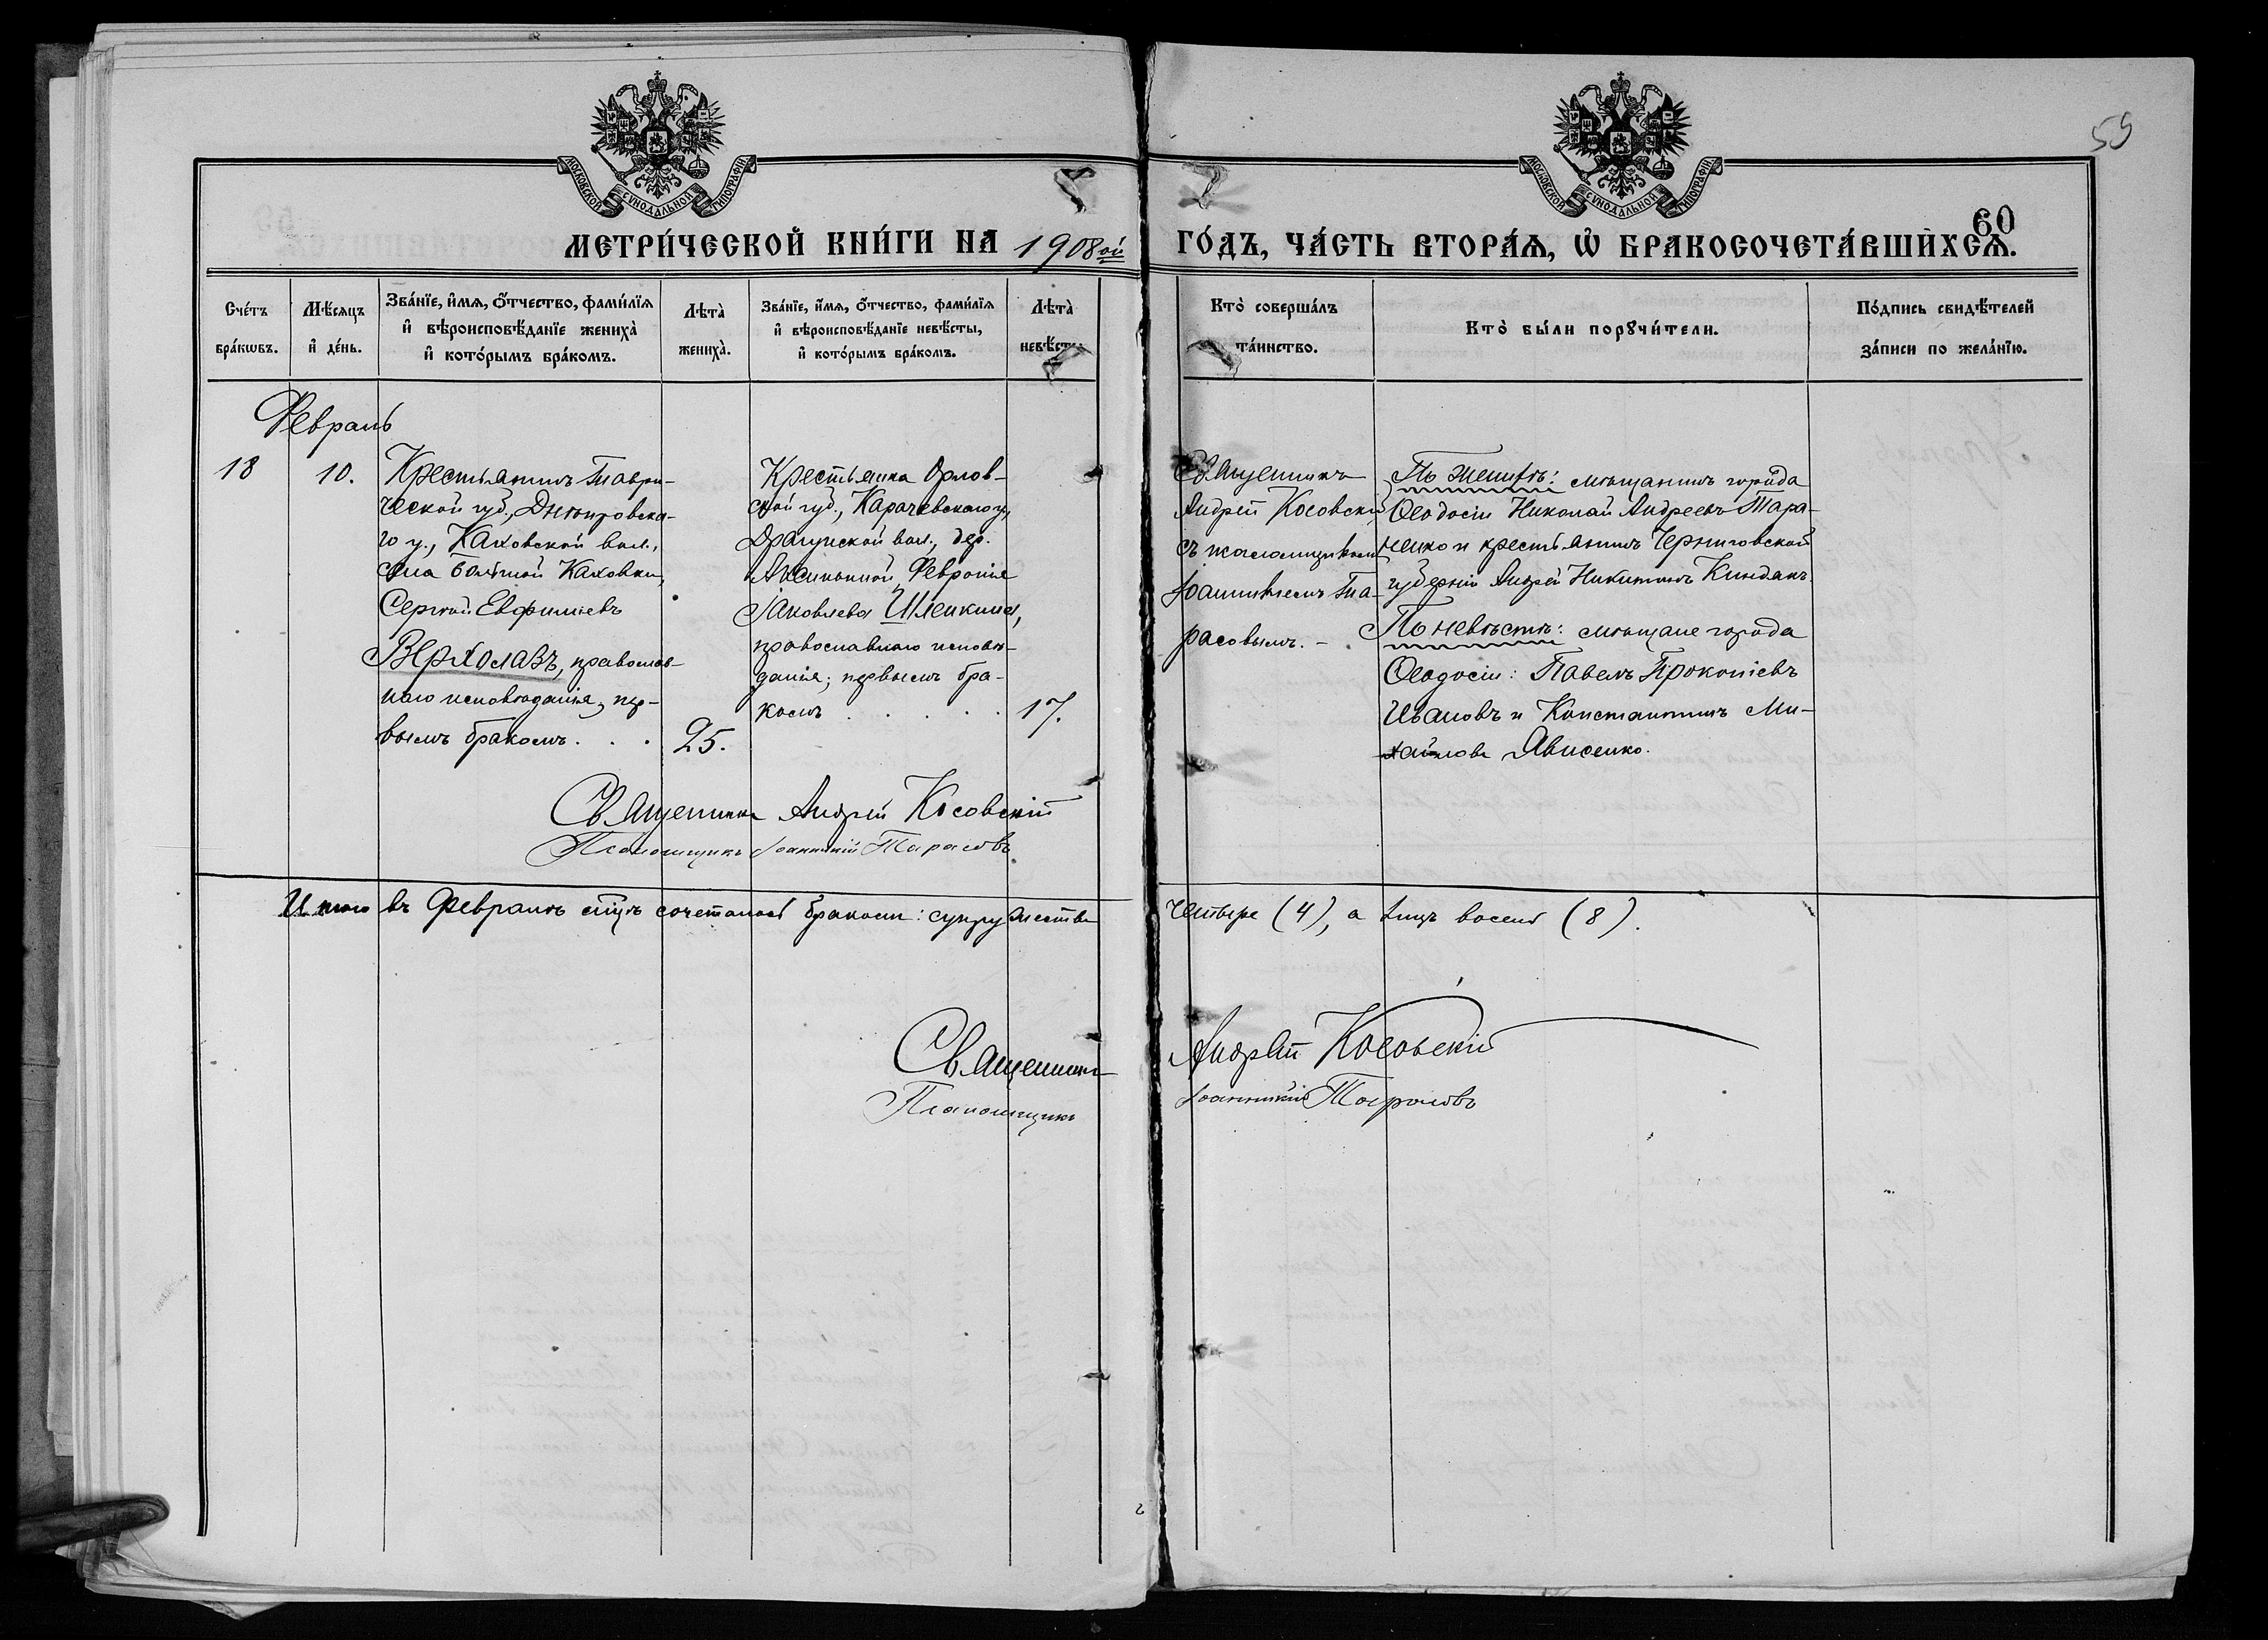 МОСКОВСКОЙ СѴНОДАЛЬНОЙ ТИПОГРАФІИ
МОСКОВСКОЙ СѴНОДАЛЬНОЙ ТИПОГРАФІИ
59
60
МЕТРИ́ЧЕСКОЙ КНИ́ГИ НА 1908ой ГО́ДЪ, ЧА́СТЬ ВТОРА́Ѧ, Ѡ҆ БРАКОСОЧЕТА́ВШИХСѦ.
Сче́тъ бра́кѡвъ.
Мѣ́сѧцъ и҆ де́нь.
Зва́нїе, и҆́мѧ, ѻ҆́тчество, фами́лїѧ
и҆ вѣроисповѣ́данїе жениха̀
и҆ кото́рымъ бра́комъ.
Лѣта̀ жениха̀.
Зва́нїе, и҆́мѧ, ѻ҆́тчество, фами́лїѧ
и҆ вѣроисповѣ́данїе невѣ́сты,
и҆ кото́рымъ бра́комъ.
Лѣта̀ невѣ́сты
Кто̀ соверша́лъ
та́инство.
Кто̀ бы́ли порꙋчи́тели.
По́дпись свидѣ́телей
за́писи по жела́нїю.
Февраль
18
10.
Крестьянинъ Таври-
ческой губ., Днѣпровска-
го у., Каховской вол.,
села Большой Каховки,
Сергѣй Евфиміевъ
Верхолазъ, православ-
наго исповѣданія, пер-
вымъ бракомъ . . .
25.
Крестьянка Орлов-
ской губ., Карачевскаго у.,
Драгунской вол., дер.
Февронія
Іаковлева Шленкина,
православнаго исповѣ-
данія; первымъ бра-
комъ . . . . .
17.
Священникъ
Андрей Косовскій
съ псаломщикомъ
Іоанникіемъ Та-
расовымъ. –
По женихѣ: мѣщанинъ города
Ѳеодосіи Николай Андреевъ Тара-
ненко и крестьянинъ Черниговской
губерніи Андрей Никитинъ Киндакъ.
По невѣстѣ: мѣщане города
Ѳеодосіи: Павелъ Прокопіевъ
Ивановъ и Константинъ Ми-
хайловъ Явисенко.
Священникъ Андрей Косовскій
Псаломщикъ Іоанникій Тарасовъ
Итого въ Февралѣ мцѣ сочеталось бракомъ: супружествъ четыре (4), а лицъ восемь (8).
Священникъ Андрей Косовскій
Псаломщикъ Іоанникій Тарасовъ